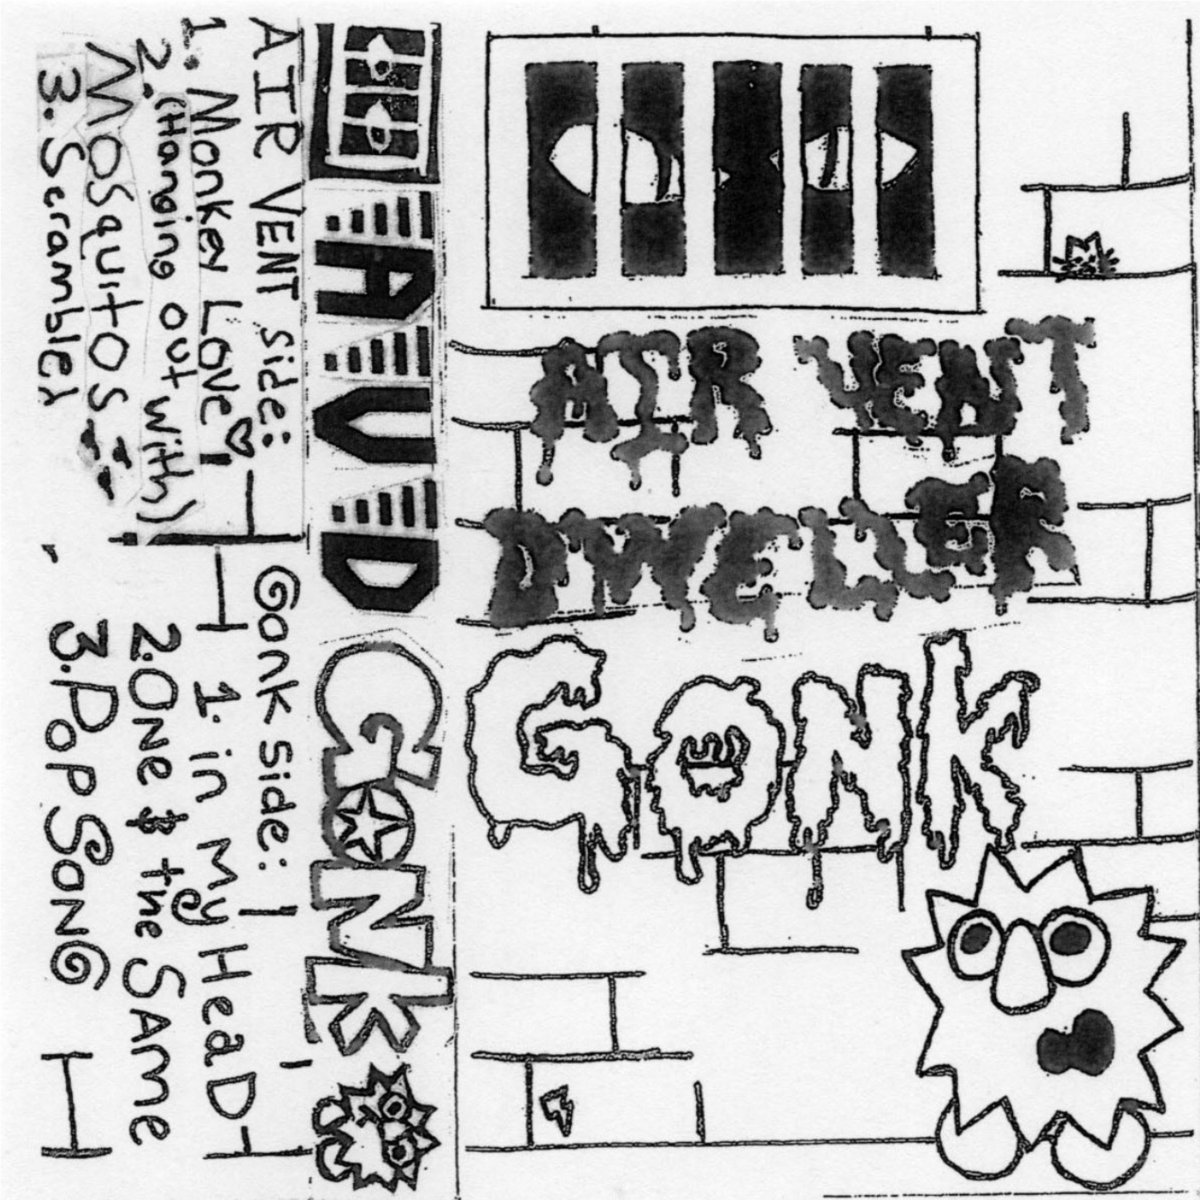 AIR VENT
DWELLER
GONK
AVD
GONK
AIR VENT side:
1. Monkey LOVE
2. (Hanging out with)
MOSQUITOS
3. Scrambled
GONK side:
1. in My HeaD
2. One & the SAme
3. POP SONG